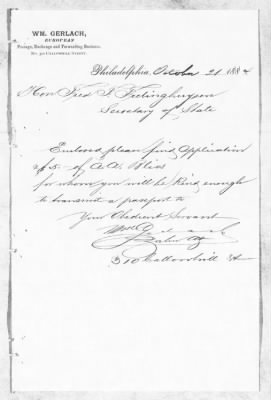 WM. GERLACH,
EUROPEAN
Passage, Exchange and Forwarding Business,
No. 310 CALLOWHILL STREET.
Philadelphia, October 21 1884
Hon Fred. T. Frelinghuysen
Secretary of State
Enclosed please find Application
of A.A. Blias
for whom you will be kind enough
to transmit a passport to
Your Obedient Servant
Wm Gerlach
310 Callowhill St